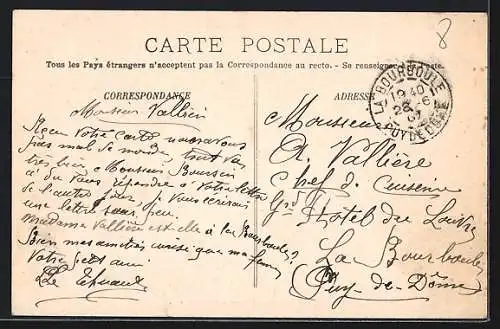 8
CARTE POSTALE
Tous les Pays étrangers n'acceptent pas la Correspondance au recto. - Se renseigner à la Poste.
CORRESPONDANCE
Monsieur Vallière
Reçu votre carte nous avons
pas mal de monde, tout va
très bien, Monsieur Boussin
a du vous répondre à votre lettre
de l'autre jour, je vous écrirai
une lettre sous peu.
Madame Vallière est-elle à la Bourboule?
Bien mes amitiés ainsi que ma femme
Votre petit ami
ADRESSE
LA BOURBOULE
19 40
26 -6
07
PUY DE DOME
Monsieur
A. Vallière
Chef de Cuisine
Gd Hôtel du Louvre
La Bourboule
(Puy-de-Dôme)